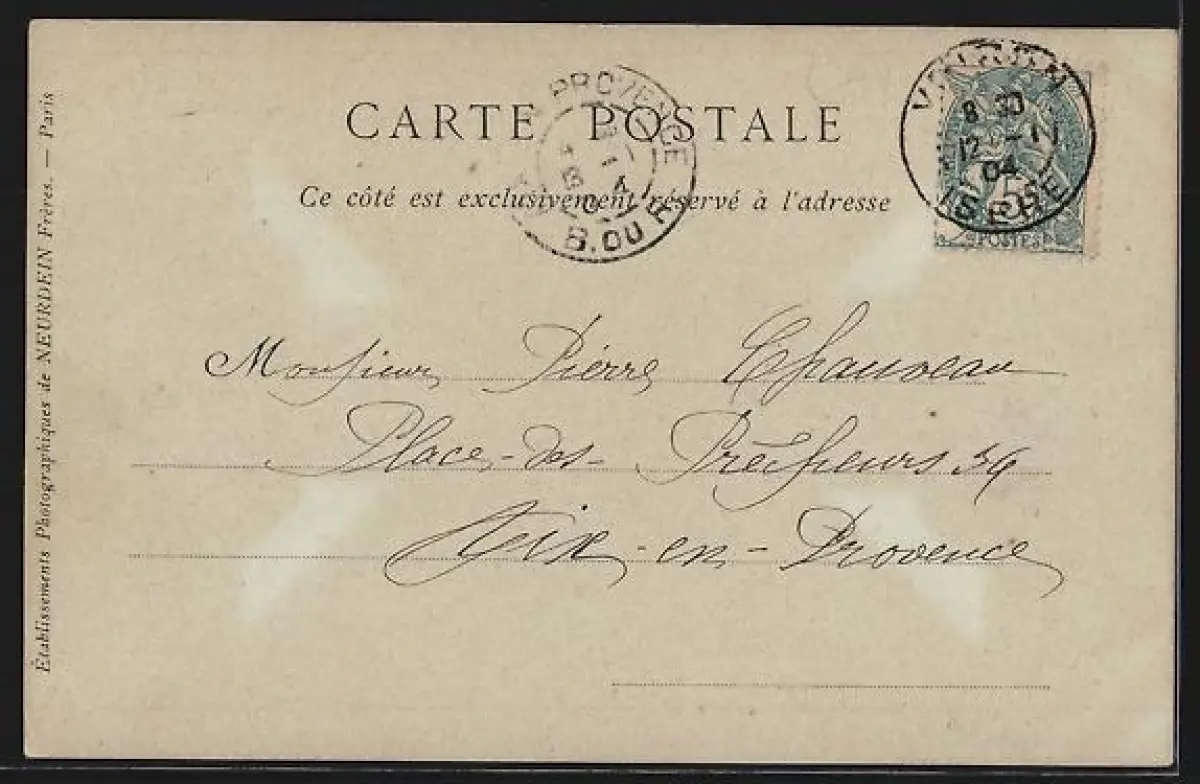 CARTE POSTALE
Ce côté est exclusivement réservé à l'adresse
PROVENCE
B. DU R.
8 30
12
04
ISERE
5
POSTES
Monsieur Pierre Chauveau
Place-des-Prêcheurs 34
Aix-en-Provence
Établissements Photographiques de NEURDEIN Frères. — Paris